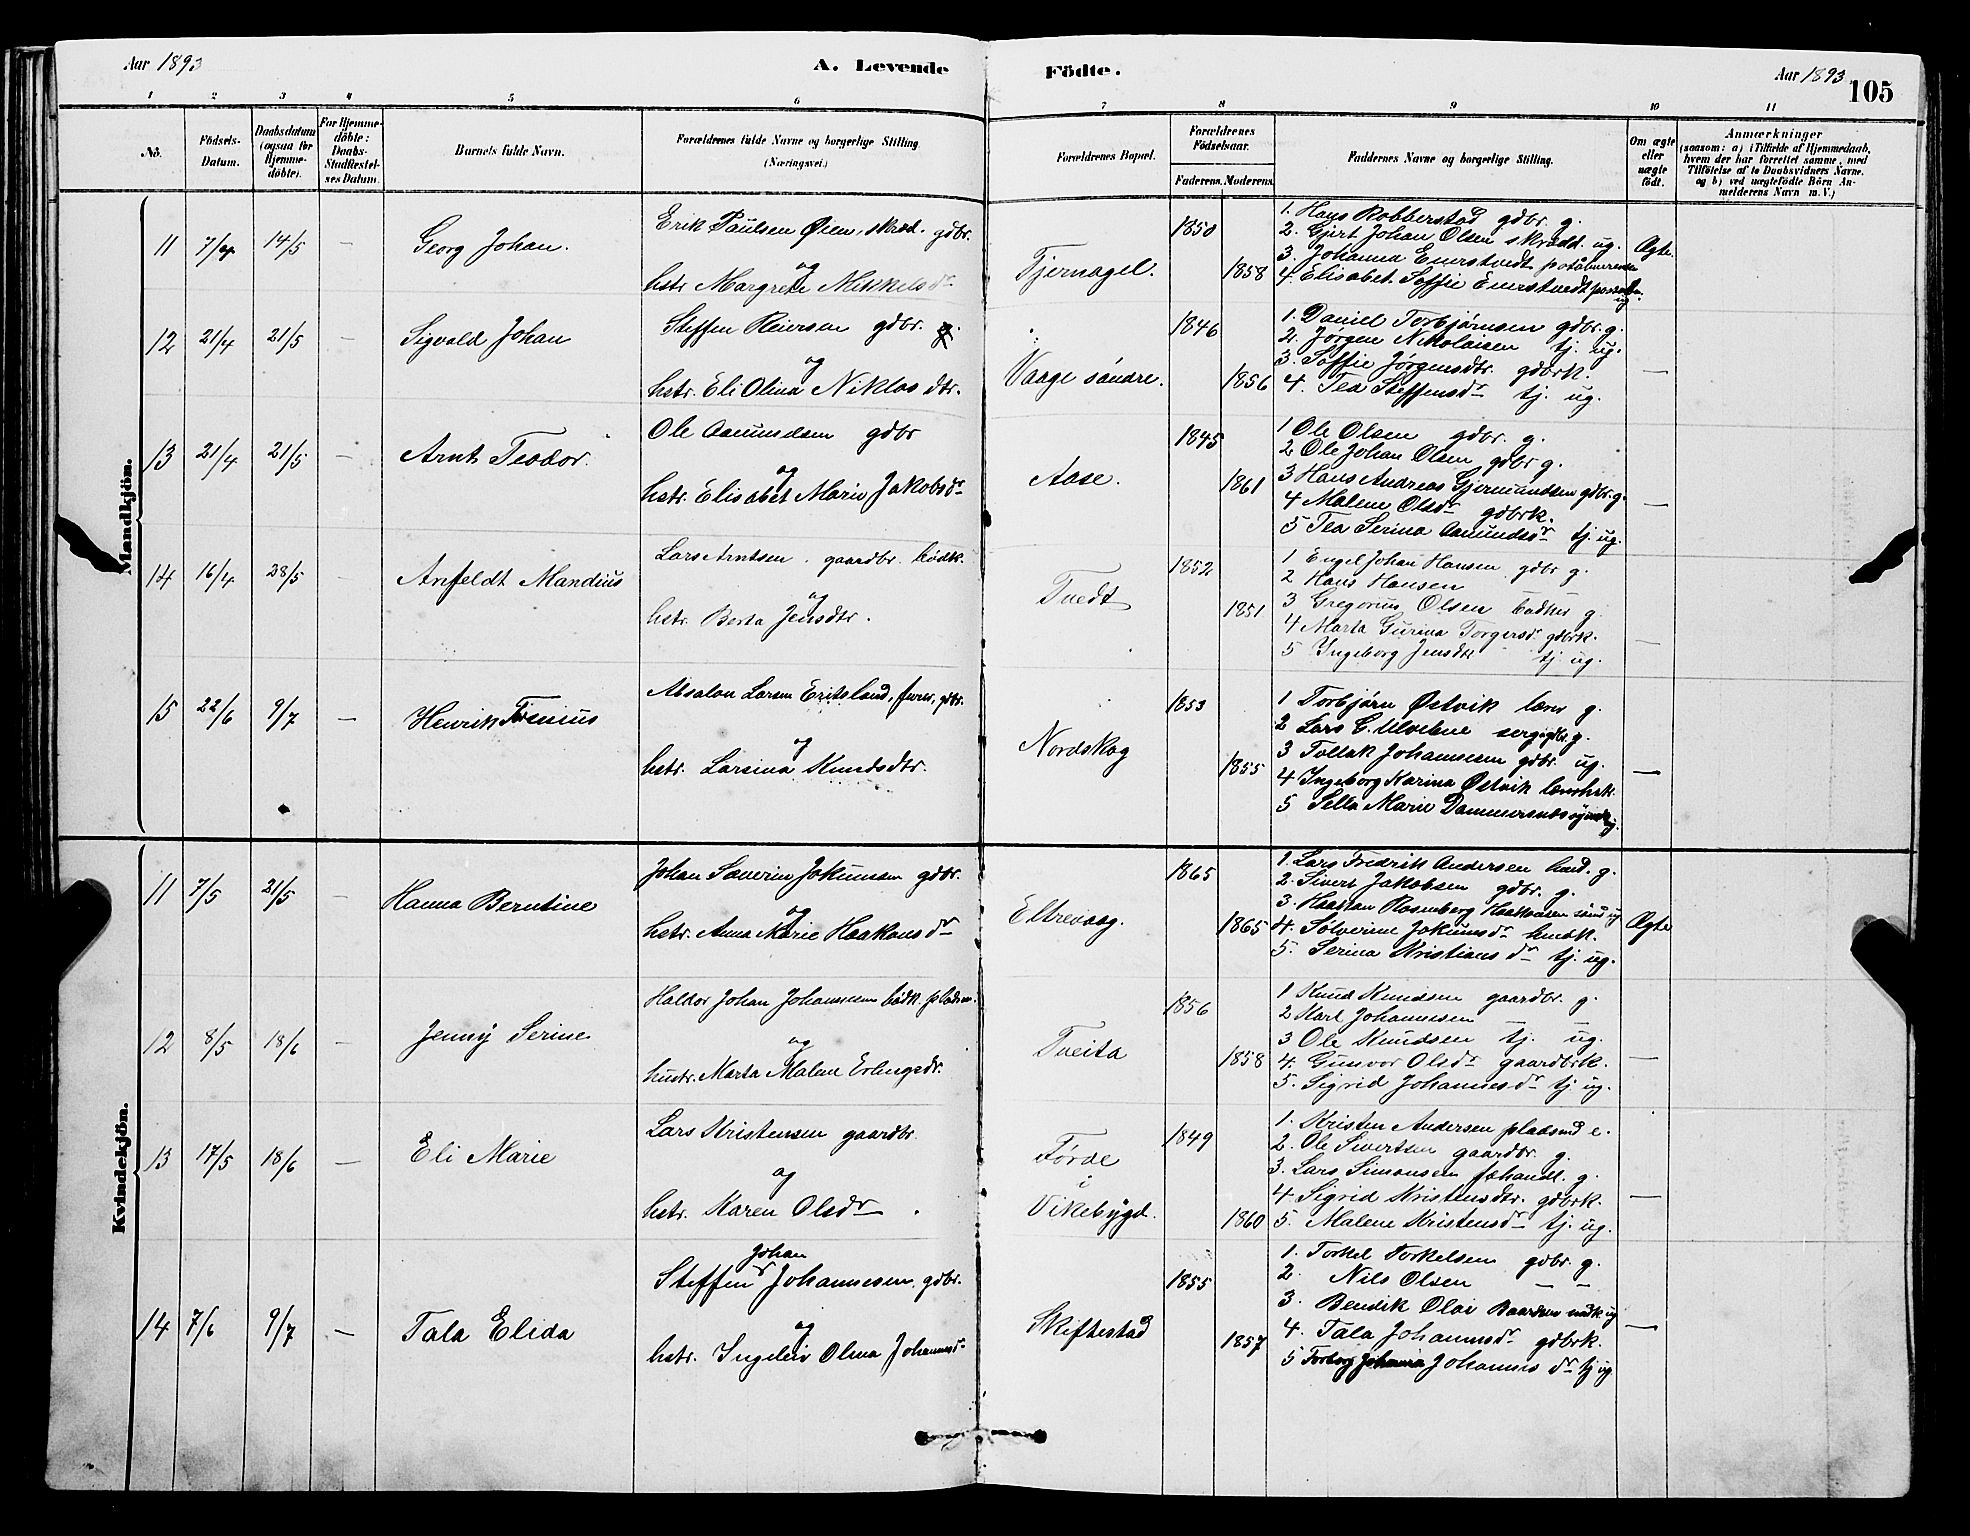 Aar 1893
A. Levende
Födte.
Aar 1893
105
1 2 3 4 5 6 7 8 9 10 11
No.
Födsels-Datum.
Daabsdatum (ogsaa for Hjemme-döbte).
For Hjemme-döbte: Daabs-Stadfæstel-ses Datum.
Barnets fulde Navn.
Forældrenes fulde Navne og borgerlige Stilling (Næringsvei.)
Forældrenes Bopæl.
Forældrenes Födselsaar.
Faderens. Moderens.
Faddernes Navne og borgerlige Stilling.
Om ægte eller uægte födt.
Anmærkninger
(saasom: a) i Tilfælde af Hjemmedaab,
hvem der har forrettet samme, med
Tilföielse af to Daabsvidners Navne,
og b) ved uægtefödte Börn An-
melderens Navn m. V.)
Mandkjön.
11 7/4 14/5 — Georg Johan.
Erik Paulsen Øien, skræd. gdbr.
og
hstr. Margrete Mikkelsdr
Tjernagel.
1850
1858
1. Hans Robberstad gdbr. g.
2. Gjert Johan Olsen skrædd. ug.
3. Johanna Enerstvedt
4. Elisabet Soffie Enerstvedt
Ægte.
12 21/4 21/5 — Sigvald Johan
Steffen Reiersen gdbr.
og
hstr. Eli Olina Niklasdtr.
Vaage söndre.
1846
1856
1. Daniel Torbjørnsen gdbr. g.
2. Jørgen Nikolaisen tj. ug.
3. Soffie Jørgensdtr. gdbrk.
4. Tea Steffensdr tj. ug.
—
13 21/4 21/5 — Arnt Teodor.
Ole Aamundsen gdbr
og
hstr. Elisabet Marie Jakobsdr
Aase.
1845
1861
1 Ole Olsen gdbr. g.
2 Ole Johan Olsen gdbr g.
3 Hans Andreas Gjermundsen gdbr. g.
4 Malene Olsdr gdbrk.
5 Tea Serina Aamundsdr tj. ug.
—
14 16/4 28/5 — Anfeldt Mandius
Lars Arntsen. gaardbr. bødk.
og
hstr. Berta Jensdtr.
Tvedt
1852
1851
1 Engel Johan Hansen gdbr g.
2 Hans Hansen
3 Gregorius Olsen bødker g.
4 Marta Gurina Torgersdr gdbrk.
5 Ingeborg Jensdtr tj. ug.
—
15 22/6 9/7 — Henrik
Absalon Larsen Eritsland, gdbr.
og
hstr. Larsina Knudsdtr.
Nordskog
1853
1855
1 Torbjørn Østvik lærer g.
2 Lars G. Ulvebne g.
3 Tollak Johannesen gdbr. ug.
4 Ingeborg Karina Østvik
5 Sella Marie
—
Kvindekjön.
11 7/5 21/5 — Hanna Berntine
Johan Severin Jokumsen gdbr.
og
hstr. Anna Marie Haakonsdr
Eltrevaag.
1865
1865
1. Lars Fredrik Andersen g.
2. Sivert Jakobsen gdbr. g.
3. Haakon Rosenberg Haakonsen ug
4. Solverine Jokumsdr
5. Serina Kristiansdr tj. ug.
Ægte
12 8/5 18/6 — Jenny Serine
Haldor Johan Johannesen bødk. pladsm.
og
hustr. Marta Malene Erlingsdr.
Tveita
1856
1858
1 Knud Knudsen gaardbr. g.
2 Karl Johannesen
3 Ole Knudsen tj. ug.
4. Gunvor Olsdr gaardbrk.
5. Sigrid Johannesdr tj ug.
—
13 17/5 18/6 — Eli Marie
Lars Kristensen gaardbr.
og
hstr. Karen Olsdr.
Førde
i
Vikebygd.
1849
1860
1. Kristen Andersen pladsmd e.
2. Ole Sivertsen gaardbr. g.
3. Lars Simonsen g.
4 Sigrid Kristensdtr. gdbrk.
5. Malene Kristensdr tj. ug.
—
14 7/6 9/7 — Tala Elida
Johan
Steffen Johannesen. gdbr.
og
hstr. Ingeleiv Olina Johannesdr
Skiftestad
1855
1857
1. Torkel Torkelsen gdbr. g.
2. Nils Olsen — —
3. Bendik Olai Baardsen ug
4. Tala Johannesdr gdbrk.
5 Torborg Johanna Johannesdr tj ug.
—